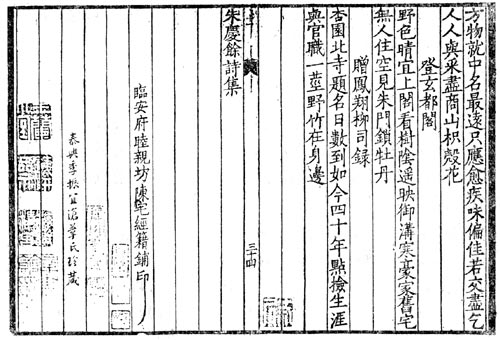 方物就中名最遠只應愈疾味偏佳若交盡乞
人人與采盡商山枳殼花
登玄都閣
野色晴宜上閣看樹陰遥映御溝寒豪家舊宅
無人住空見朱門鎖牡丹
贈鳳翔柳司錄
杏園北寺題名日數到如今四十年點撿生涯
與官職一莖野竹在身邊
三十四
朱慶餘詩集
臨安府睦親坊陳宅經籍鋪印
泰興季振宜滄葦氏珍藏